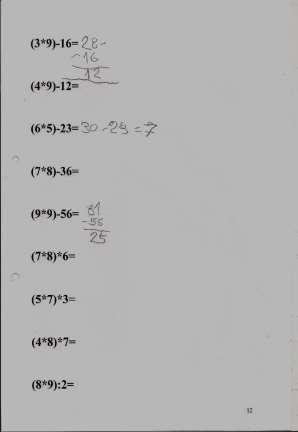 (3*9)-16= 28-
-16
12
(4*9)-12=
(6*5)-23= 30-23=7
(7*8)-36=
(9*9)-56= 81
-56
25
(7*8)*6=
(5*7)*3=
(4*8)*7=
(8*9):2=
12